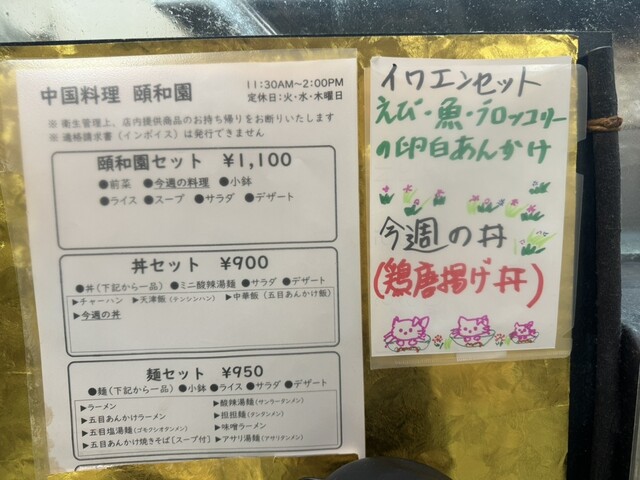 中国料理 頤和園
11:30AM～2:00PM
定休日：火・水・木曜日
※ 衛生管理上、店内提供商品のお持ち帰りをお断りいたします
※ 適格請求書（インボイス）は発行できません
頤和園セット ¥1,100
●前菜 ●今週の料理 ●小鉢
●ライス ●スープ ●サラダ ●デザート
丼セット ¥900
●丼（下記から一品） ●ミニ酸辣湯麺 ●サラダ ●デザート
▶チャーハン ▶天津飯（テンシンハン） ▶中華飯（五目あんかけ飯）
▶今週の丼
麺セット ¥950
●麺（下記から一品） ●小鉢 ●ライス ●サラダ ●デザート
▶ラーメン
▶五目あんかけラーメン
▶五目塩湯麺（ゴモクシオタンメン）
▶五目あんかけ焼きそば（スープ付）
▶酸辣湯麺（サンラータンメン）
▶担担麺（タンタンメン）
▶味噌ラーメン
▶アサリ湯麺（アサリタンメン）
イワエンセット
えび・魚・ブロッコリー
の卵白あんかけ
今週の丼
（鶏唐揚げ丼）